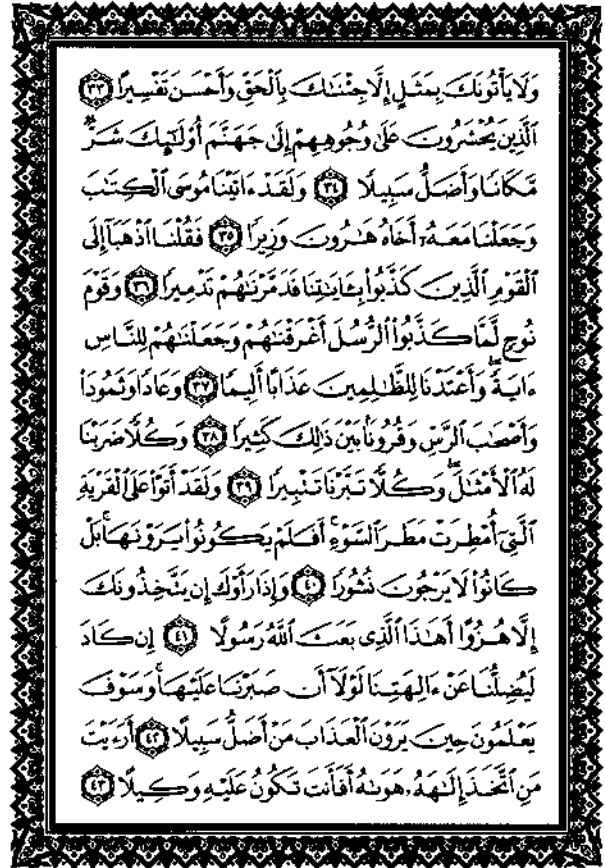 وَلَا يَأْتُونَكَ بِمَثَلٍ إِلَّا جِئْنَٰكَ بِٱلْحَقِّ وَأَحْسَنَ تَفْسِيرًا ٣٣
ٱلَّذِينَ يُحْشَرُونَ عَلَىٰ وُجُوهِهِمْ إِلَىٰ جَهَنَّمَ أُو۟لَٰٓئِكَ شَرٌّ
مَّكَانًا وَأَضَلُّ سَبِيلًا ٣٤ وَلَقَدْ ءَاتَيْنَا مُوسَى ٱلْكِتَٰبَ
وَجَعَلْنَا مَعَهُۥٓ أَخَاهُ هَٰرُونَ وَزِيرًا ٣٥ فَقُلْنَا ٱذْهَبَآ إِلَى
ٱلْقَوْمِ ٱلَّذِينَ كَذَّبُوا۟ بِـَٔايَٰتِنَا فَدَمَّرْنَٰهُمْ تَدْمِيرًا ٣٦ وَقَوْمَ
نُوحٍ لَّمَّا كَذَّبُوا۟ ٱلرُّسُلَ أَغْرَقْنَٰهُمْ وَجَعَلْنَٰهُمْ لِلنَّاسِ
ءَايَةً ۖ وَأَعْتَدْنَا لِلظَّٰلِمِينَ عَذَابًا أَلِيمًا ٣٧ وَعَادًا وَثَمُودَا۟
وَأَصْحَٰبَ ٱلرَّسِّ وَقُرُونًۢا بَيْنَ ذَٰلِكَ كَثِيرًا ٣٨ وَكُلًّا ضَرَبْنَا
لَهُ ٱلْأَمْثَٰلَ ۖ وَكُلًّا تَبَّرْنَا تَتْبِيرًا ٣٩ وَلَقَدْ أَتَوْا۟ عَلَى ٱلْقَرْيَةِ
ٱلَّتِىٓ أُمْطِرَتْ مَطَرَ ٱلسَّوْءِ ۚ أَفَلَمْ يَكُونُوا۟ يَرَوْنَهَا ۚ بَلْ
كَانُوا۟ لَا يَرْجُونَ نُشُورًا ٤٠ وَإِذَا رَأَوْكَ إِن يَتَّخِذُونَكَ
إِلَّا هُزُوًا أَهَٰذَا ٱلَّذِى بَعَثَ ٱللَّهُ رَسُولًا ٤١ إِن كَادَ
لَيُضِلُّنَا عَنْ ءَالِهَتِنَا لَوْلَآ أَن صَبَرْنَا عَلَيْهَا ۚ وَسَوْفَ
يَعْلَمُونَ حِينَ يَرَوْنَ ٱلْعَذَابَ مَنْ أَضَلُّ سَبِيلًا ٤٢ أَرَءَيْتَ
مَنِ ٱتَّخَذَ إِلَٰهَهُۥ هَوَىٰهُ أَفَأَنتَ تَكُونُ عَلَيْهِ وَكِيلًا ٤٣